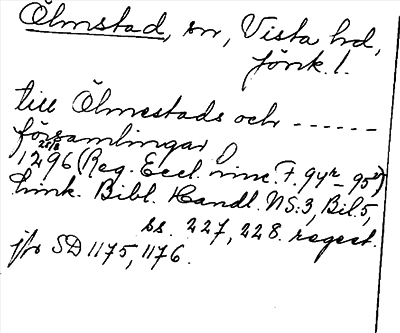 Ölmstad, sn, Vista hd,
Jönk. l.
till Ölmestads och ------
församlingar
25/8
1296 (Reg. Eccl. Linc. F. 94r - 95v)
Link. Bibl. Handl. NS:3, Bil. 5,
ss. 227, 228. regest.
jfr SD 1175, 1176.